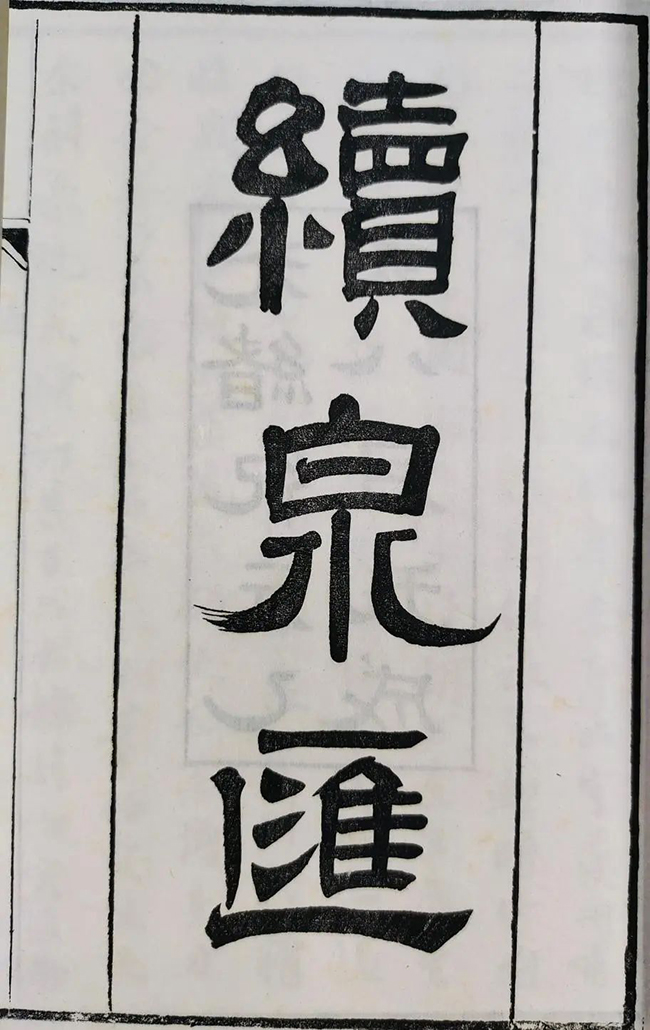 續泉匯